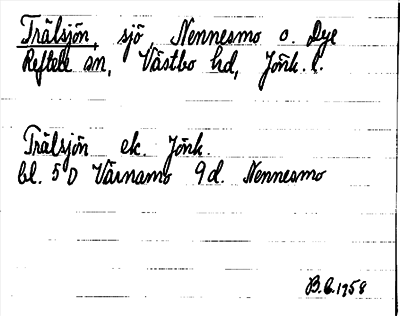 Trälsjön, sjö, Nennesmo o. Dye
Reftele sn, Västbo hd, Jönk. l.
Trälsjön ek. Jönk.
bl. 5 D Värnamo 9d. Nennesmo
B.E. 1958